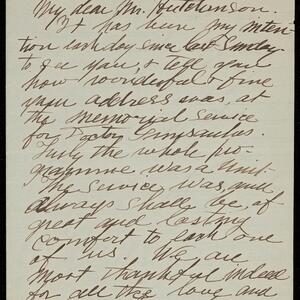 My dear Mr. Hutchinson.
It has been my inten
tion each day since last Sunday
to see you, & tell you
how wonderful & fine
your address was, at
the memorial service
for Doctor Gunsaulus.
Truly the whole pro-
gramme was a unit.
The service was, and
always shall be, of
great and lasting
comfort to each one
of us. We are
most thankful indeed
for all the love and